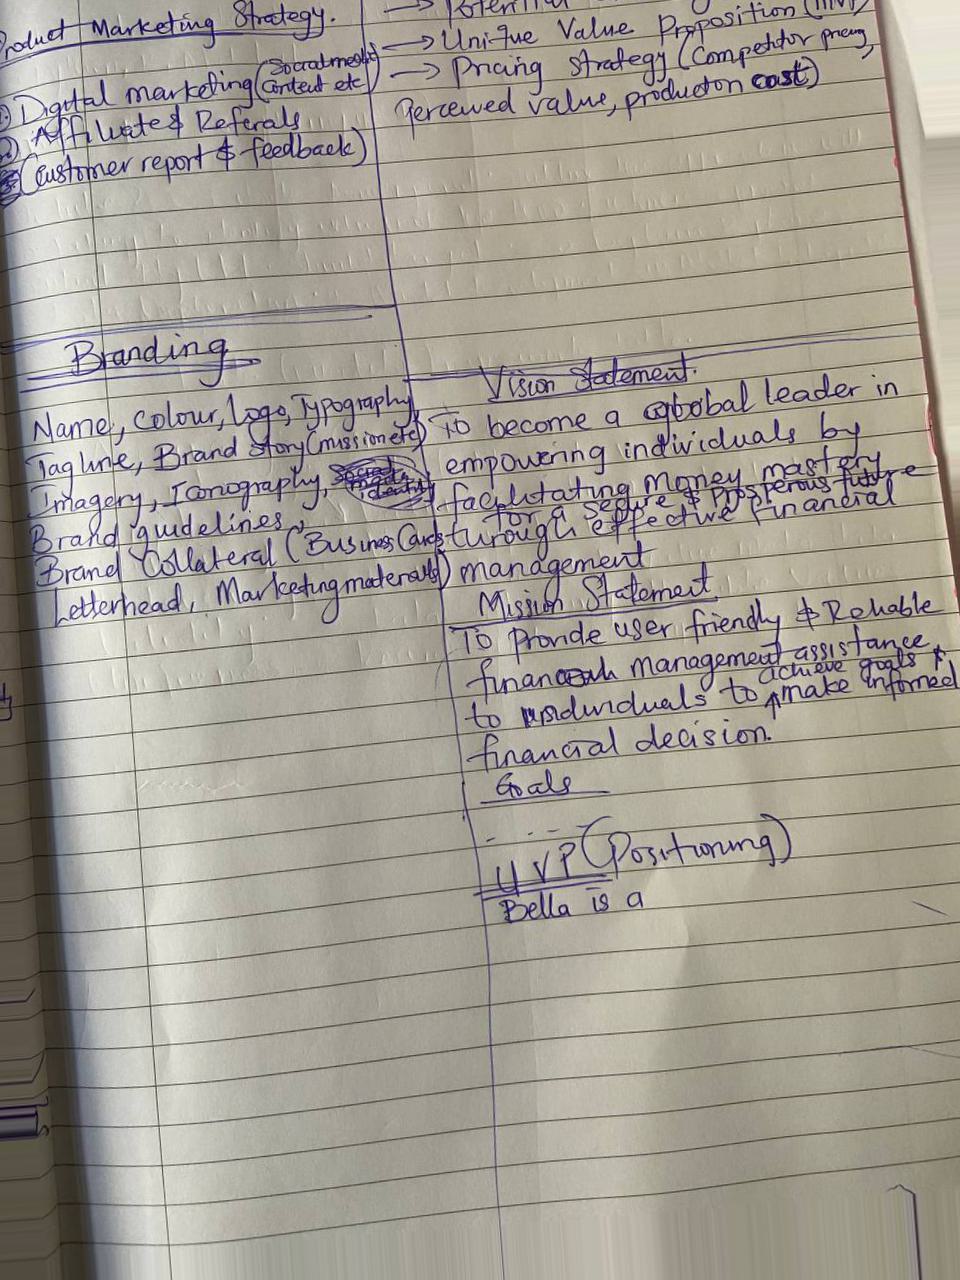 Product Marketing Strategy.
Digital marketing (Social media
Content etc)
Affiliate & Referals
(Customer report & feedback)
→ Potential
→ Unique Value Proposition
→ Pricing Strategy (Competitor pricing,
Perceived value, production cost)
Branding
Name, Colour, Logo, Typography
Tagline, Brand story (mission etc)
Imagery, Iconography,
Brand guidelines
Brand Collateral (Business Cards
Letterhead, Marketing materials)
Vision Statement.
To become a global leader in
empowering individuals by
facilitating money mastery
for a secure & prosperous future
through effective financial
management
Mission Statement
To provide user friendly & Reliable
financial management assistance
to individuals to achieve goals & make informed
financial decision.
Goals
- - - -
UVP (Positioning)
Bella is a